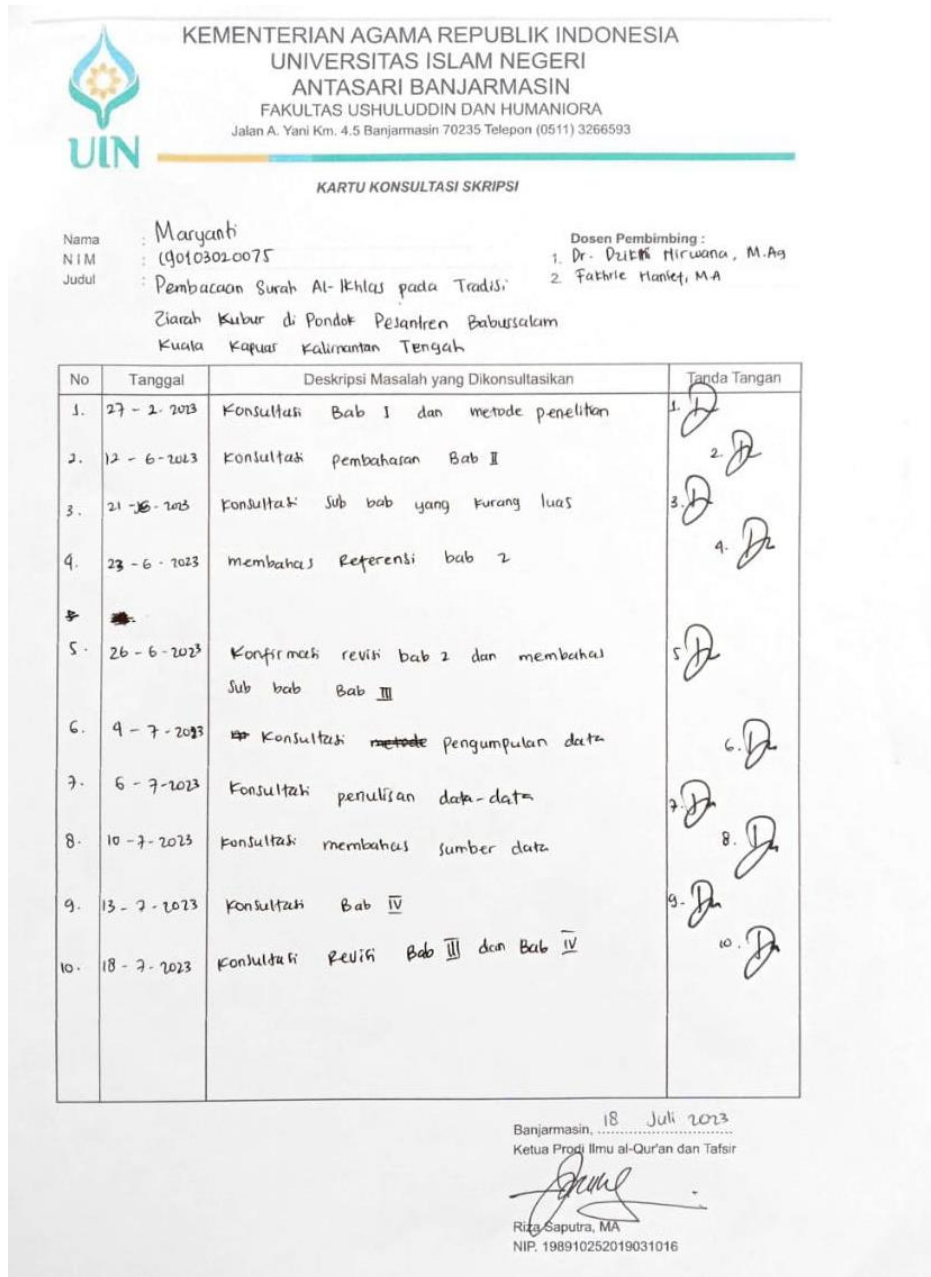 KEMENTERIAN AGAMA REPUBLIK INDONESIA
UNIVERSITAS ISLAM NEGERI
ANTASARI BANJARMASIN
FAKULTAS USHULUDDIN DAN HUMANIORA
Jalan A. Yani Km. 4.5 Banjarmasin 70235 Telepon (0511) 3266593
UIN
KARTU KONSULTASI SKRIPSI
Nama : Maryanti
NIM : 190103020075
Judul : Pembacaan Surah Al-Ikhlas pada Tradisi
Ziarah Kubur di Pondok Pesantren Babussalam
Kuala Kapuas Kalimantan Tengah
Dosen Pembimbing :
1. Dr. Dzikri Nirwana, M.Ag
2. Fakhrie Hanief, M.A
No Tanggal Deskripsi Masalah yang Dikonsultasikan Tanda Tangan
1. 27 - 2 - 2023 Konsultasi Bab I dan metode penelitian 1.
2. 12 - 6 - 2023 Konsultasi pembahasan Bab II 2.
3. 21 - 6 - 2023 Konsultasi Sub bab yang kurang luas 3.
4. 23 - 6 - 2023 membahas Referensi bab 2 4.
5. 26 - 6 - 2023 Konfirmasi revisi bab 2 dan membahas 5
Sub bab Bab III
6. 4 - 7 - 2023 Konsultasi metode pengumpulan data 6.
7. 6 - 7 - 2023 Konsultasi penulisan data-data 7.
8. 10 - 7 - 2023 Konsultasi membahas sumber data 8.
9. 13 - 7 - 2023 Konsultasi Bab IV 9.
10. 18 - 7 - 2023 Konsultasi Revisi Bab III dan Bab IV 10.
Banjarmasin, 18 Juli 2023
Ketua Prodi Ilmu al-Qur'an dan Tafsir
Riza Saputra, MA
NIP. 198910252019031016